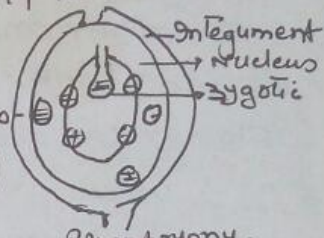 Integument
Nucleus
Zygotic